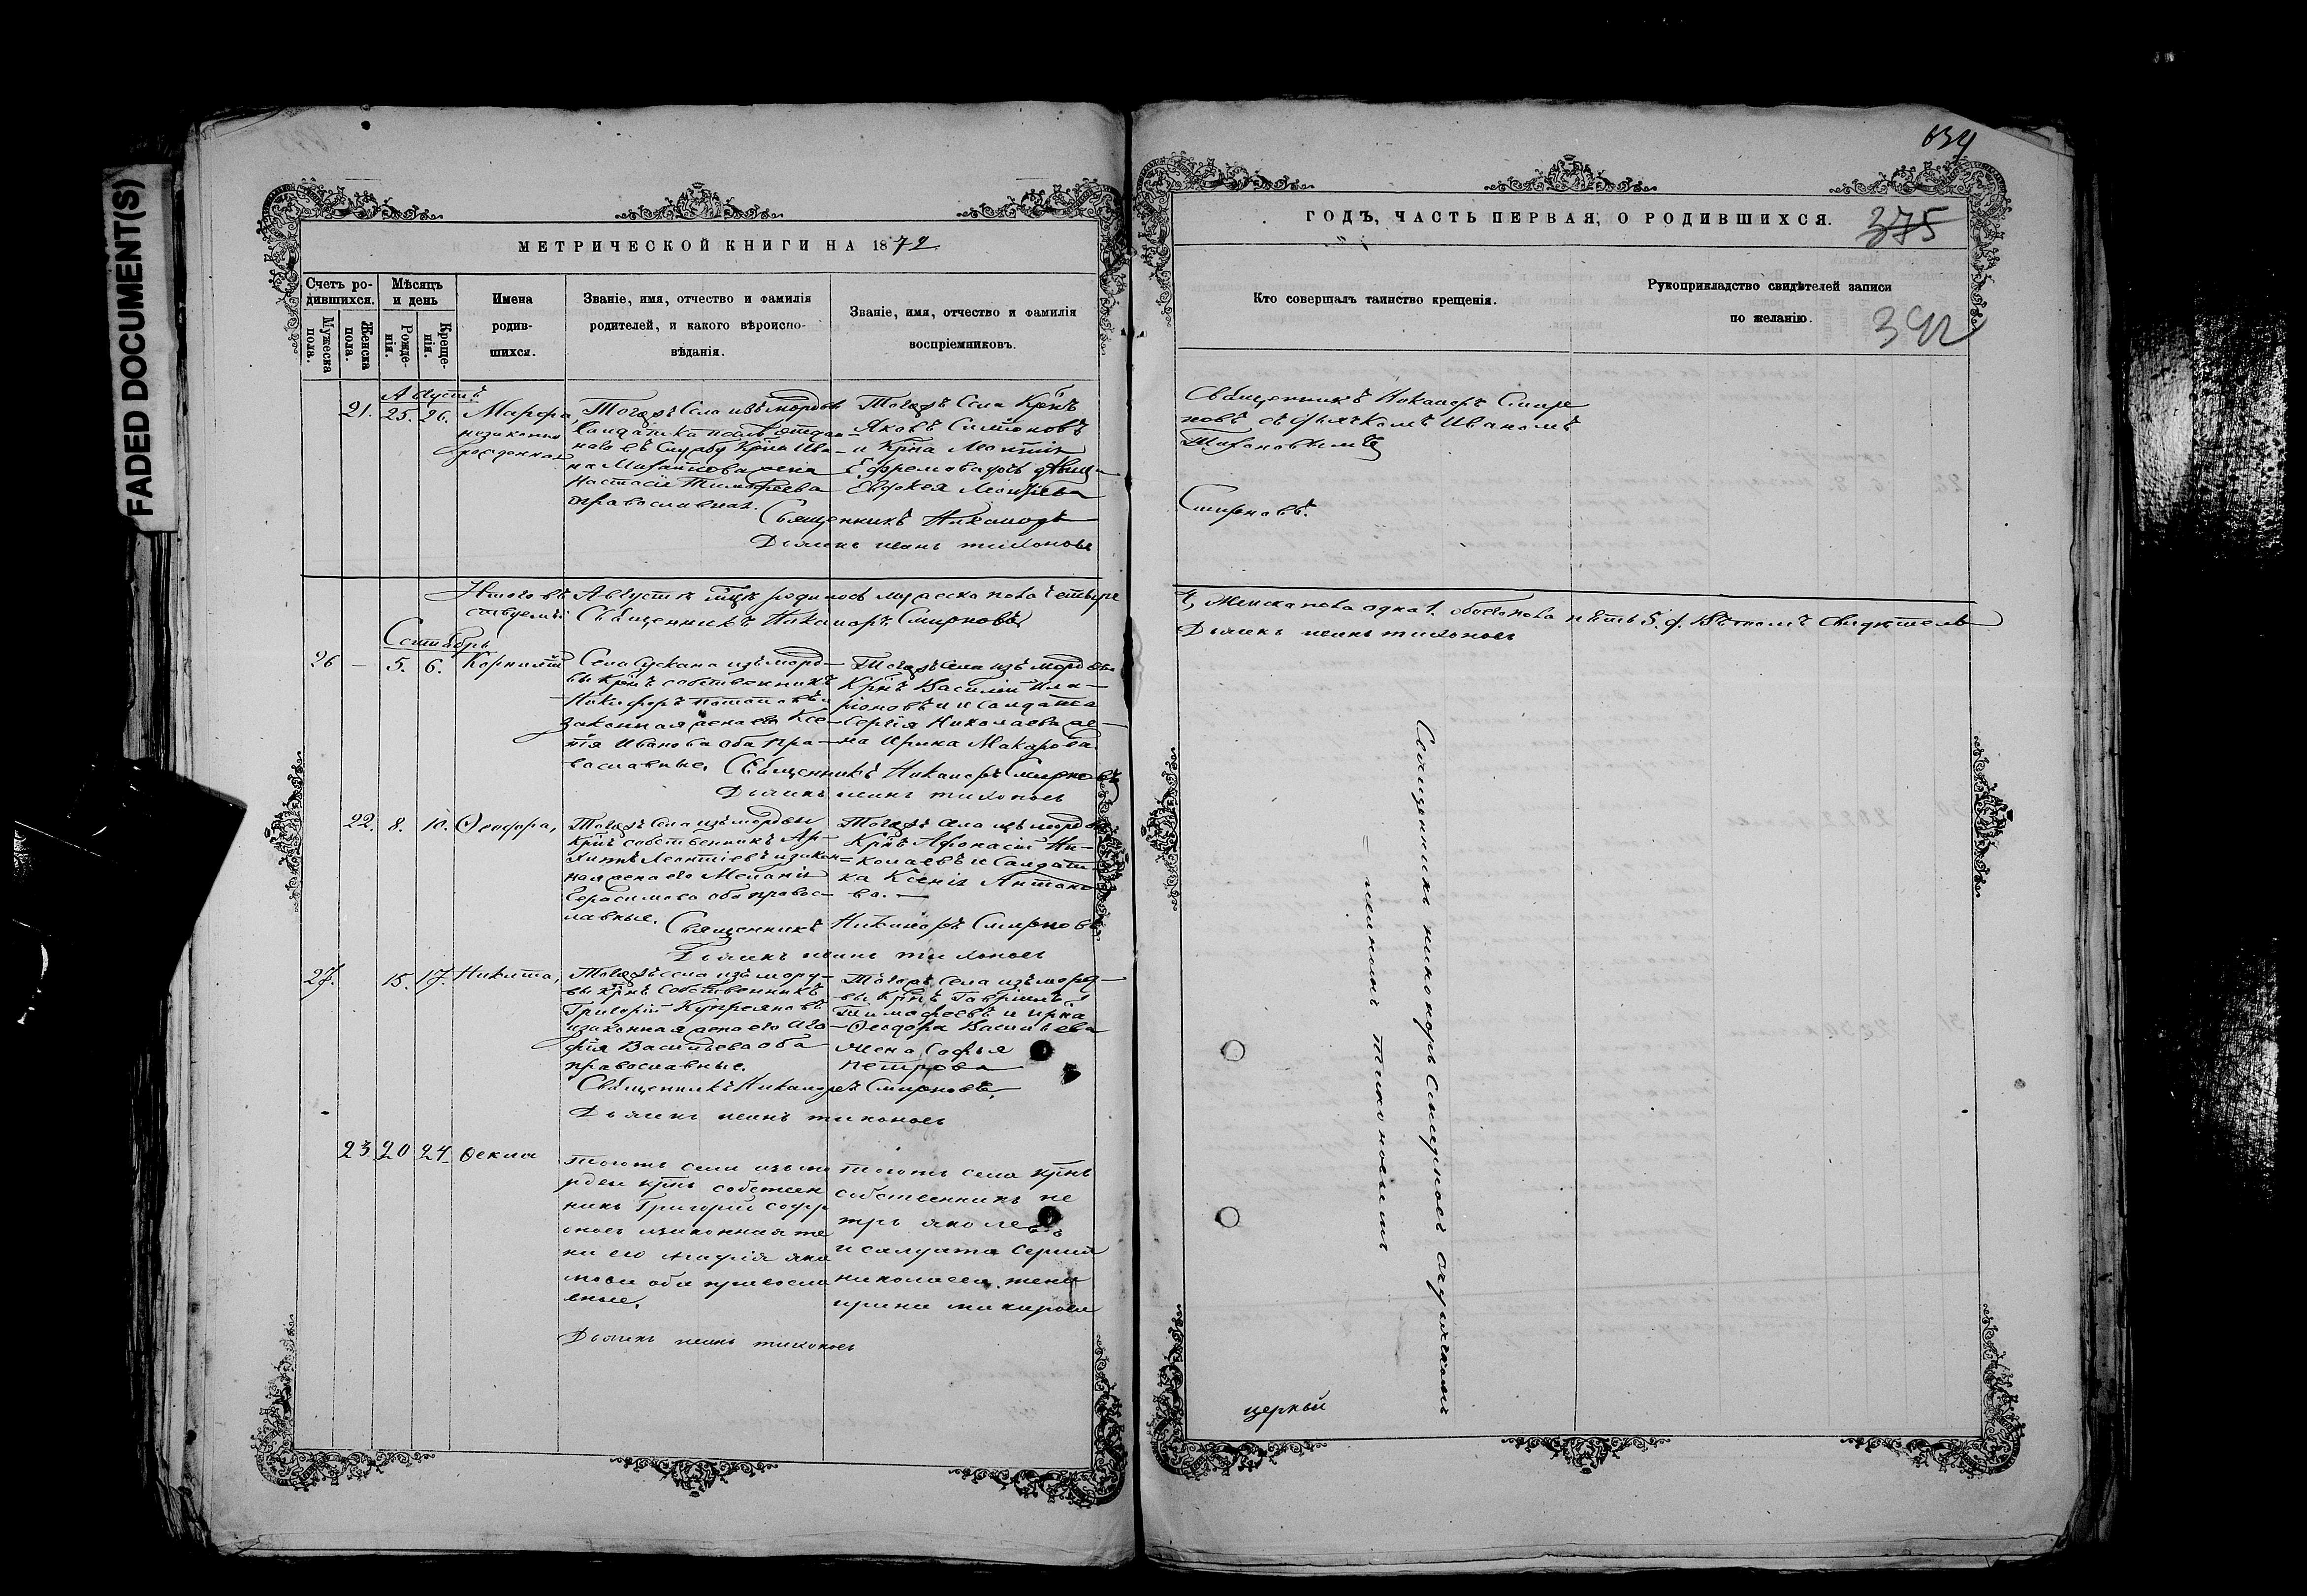 FADED DOCUMENT(S)
МЕТРИЧЕСКОЙ КНИГИ НА 1872
Счетъ ро-
дившихся.
Мужеска
пола.
Женска
пола.
Мѣсяцъ
и день
Рожде-
нія.
Креще-
нія.
Имена
родив-
шихся.
Званіе, имя, отчество и фамилія
родителей, и какого вѣроиспо-
вѣданія.
Званіе, имя, отчество и фамилія
воспріемниковъ.
Августъ
21. 25. 26. Марфа,
незаконно
рожденная
Тогожъ Села изъ мордвы
Солдатка
на въ Службу Крнъ Ива-
на жена
Настасія Тимофеева
православная.
Тогожъ Села Крнъ
Яковъ Симоновъ
и Крна Леонтія
Ефремова дочь девица
Евдокея Леонтіева
Священникъ Никаноръ
Дьячекъ иванъ тихоновъ
Итого въ Августѣ мцѣ родилось мужеска пола четыре
Священникъ Никаноръ Смирновъ
Сентябрь
26 — 5. 6. Корнилій
Села Сускана изъ морд-
вы крнъ собственникъ
Никифоръ Потаповъ и
законная жена его Ксе-
нія Иванова оба пра-
вославные.
Тогожъ Села изъ мордвы
Крнъ Василій Ила-
ріоновъ и Солдата
Сергія Николаева же-
на Ирина Макарова.
Священникъ Никаноръ Смирновъ
Дьячекъ иванъ тихоновъ
22. 8. 10. Ѳеодора,
Тогожъ Села изъ мордвы
Крнъ собственникъ Ар-
хипъ Леонтіевъ и закон-
ная жена его Меланія
Герасимова оба правос-
лавные.
Тогожъ Села изъ мордвы
Крнъ Афонасій Ни-
колаевъ и Солдат-
ка Ксенія Антоно-
ва. —
Священникъ Никаноръ Смирновъ
Дьячекъ иванъ тихоновъ
27. 15. 17. Никита,
Тогожъ села изъ морд-
вы крнъ Собственникъ
Григорій Купреяновъ
и законная жена его Ага-
фія Васильева оба
православные.
Тогожъ Села изъ морд-
вы Крнъ Гавріилъ
Тимофеевъ и крна
Ѳеодора Васильева
жена Софья
Петрова
Священникъ Никаноръ Смирновъ.
Дьячекъ иванъ тихоновъ
23. 20 24. Ѳекла
Тогожъ села изъ мо
рдвы крнъ собствен
никъ Григорій Софр
оновъ и законная же
на его Агафія яко
влева оба правосла
вные.
тогожъ села крнъ
собственникъ пе
тръ яковле
и салдата сергия
николаева жена
ирина макарова
Дьячекъ иванъ тихоновъ
634
ГОДЪ, ЧАСТЬ ПЕРВАЯ, О РОДИВШИХСЯ.
375
Кто совершалъ таинство крещенія.
Рукоприкладство свидѣтелей записи
по желанію.
392
Священникъ Никаноръ Смир
новъ съ дьячкомъ Иваномъ
Тихоновымъ
Смирновъ.
4, Женска пола одна 1. обоего пола пять 5. Въ томъ свидѣтель
Дьячекъ иванъ тихоновъ
Священникъ никоноръ Смирновъ с дьячкомъ
иваномъ тихоновымъ
церкви